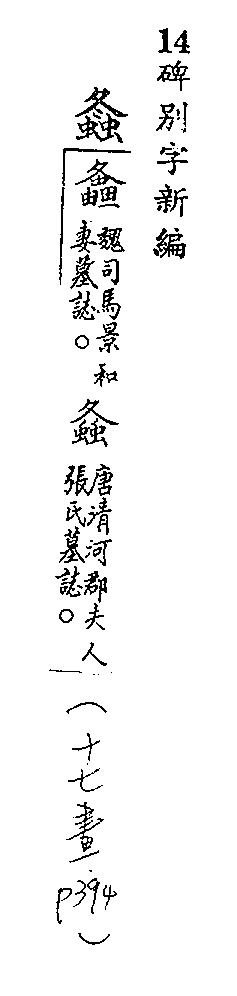 14碑別字新編
螽
魏司馬景和
妻墓誌。
唐清河郡夫人
張氏墓誌。
(十七畫 p394)